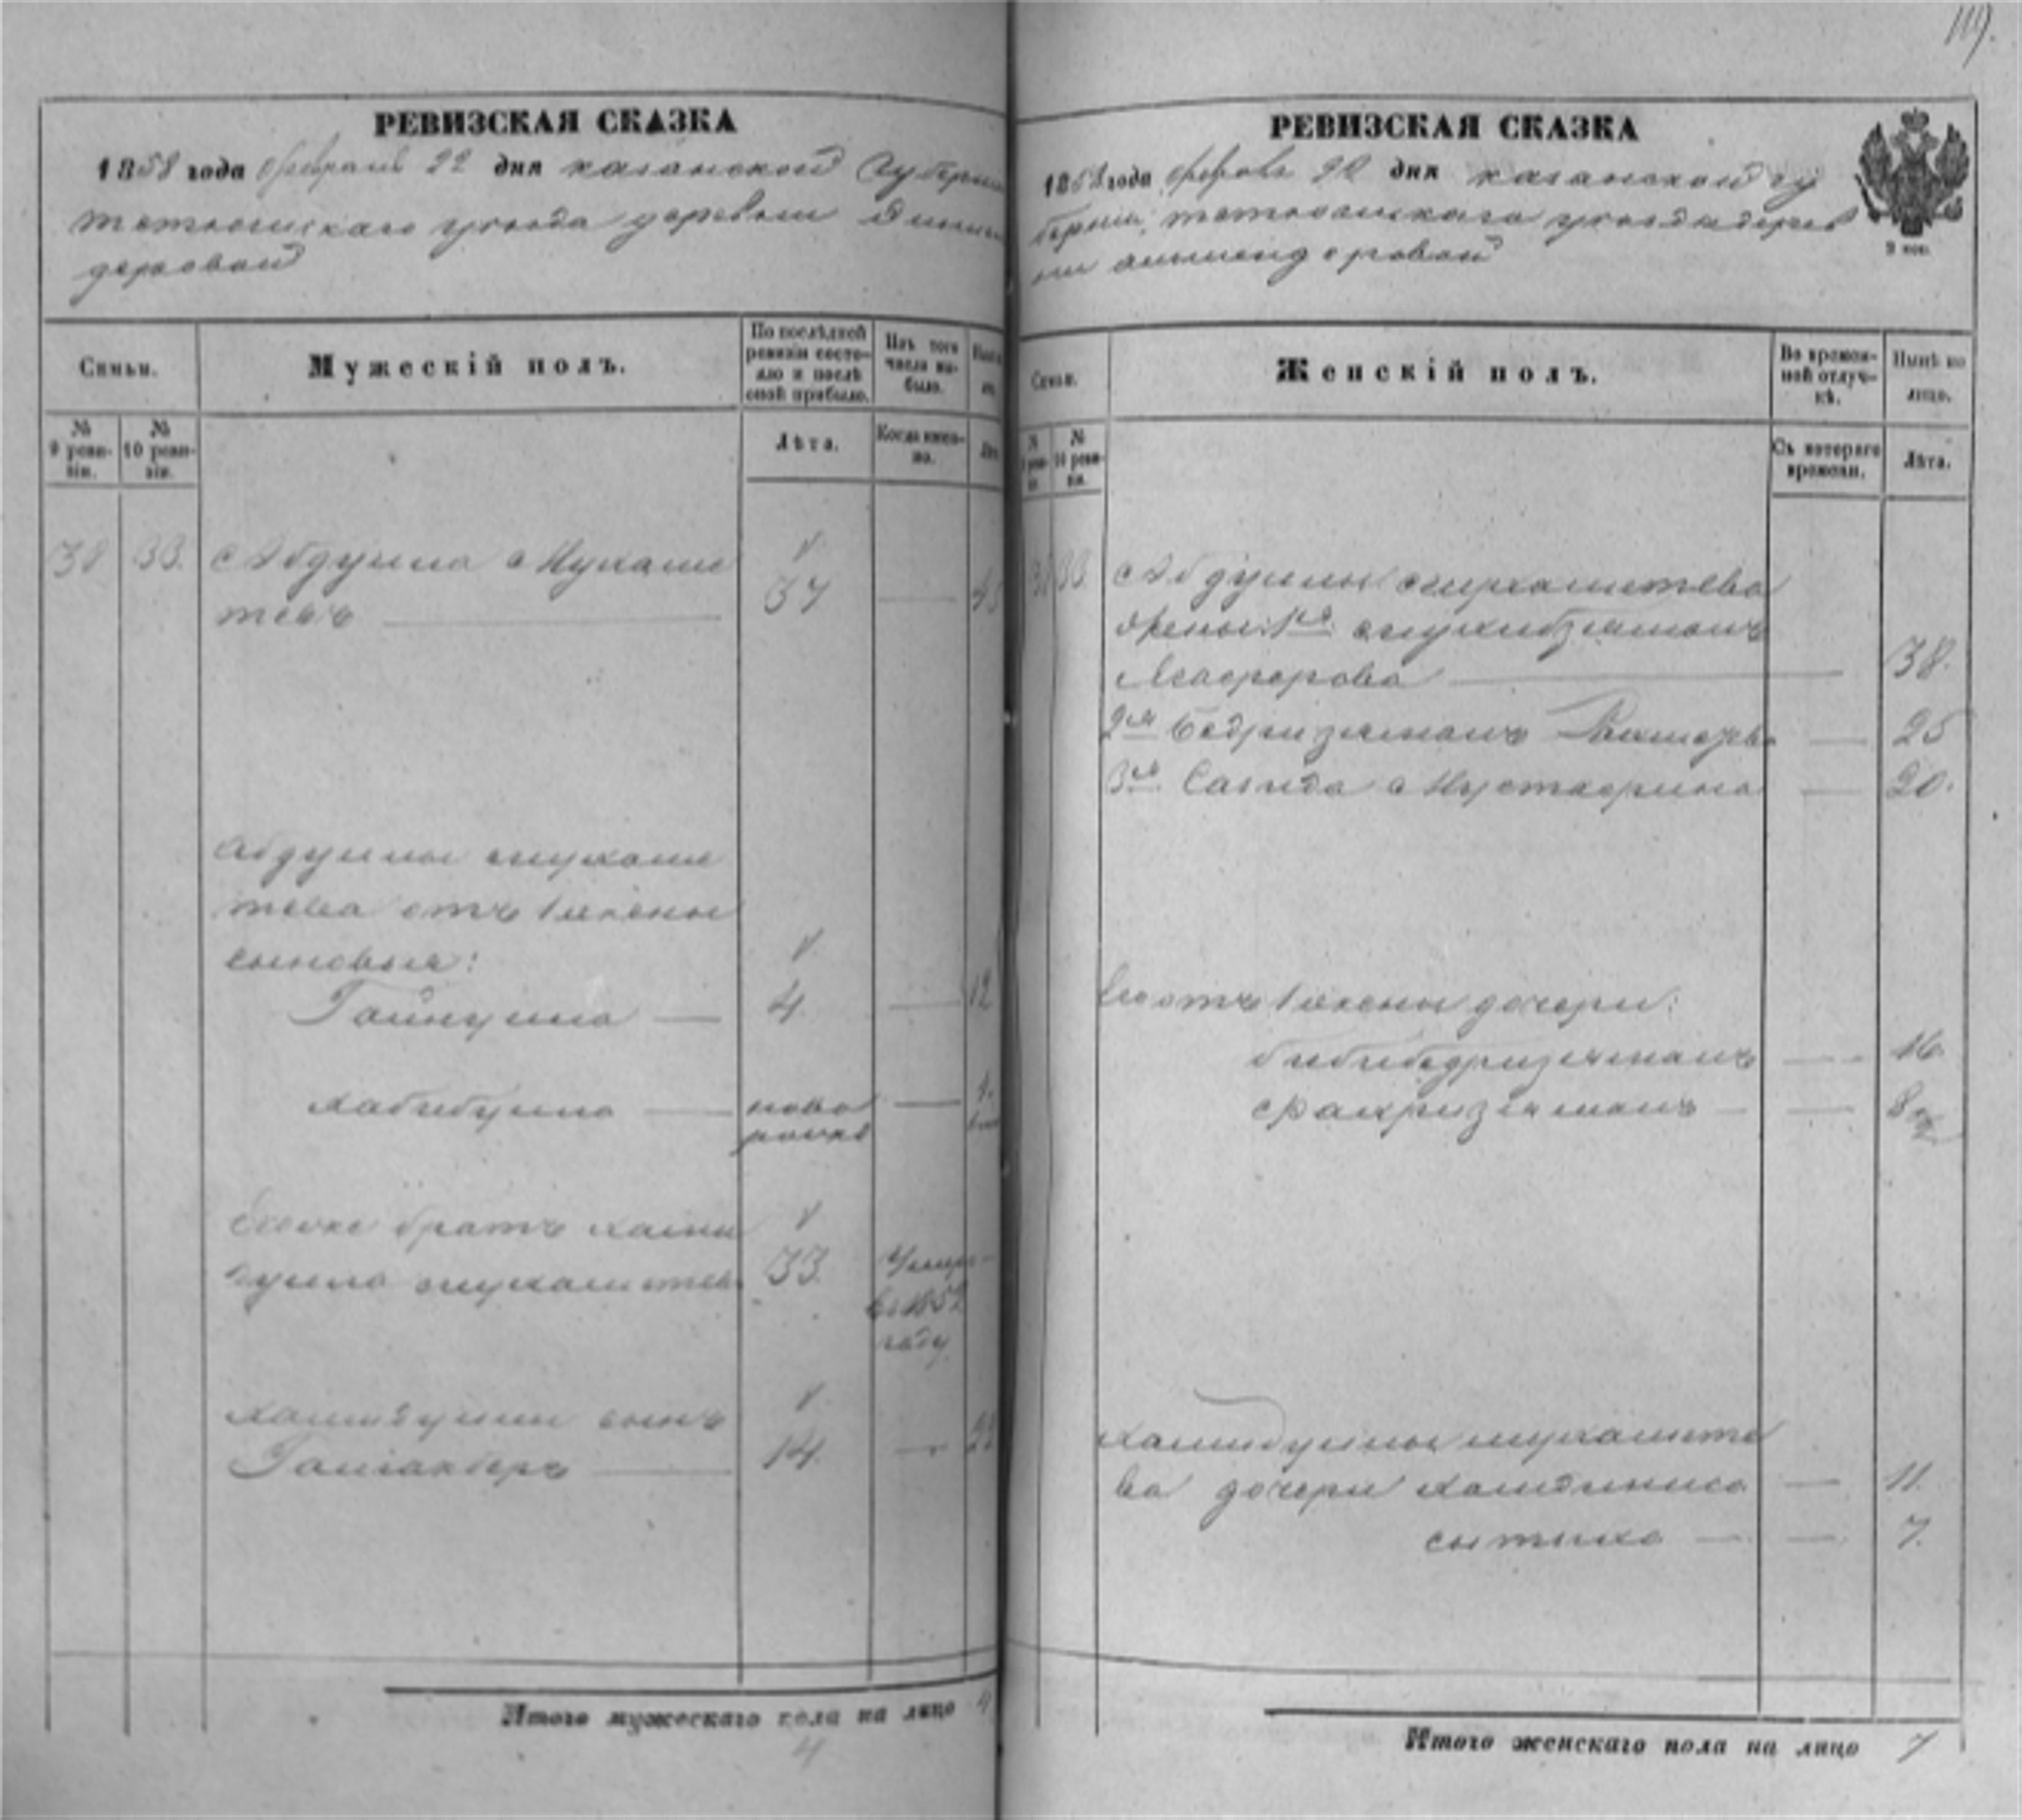 119.
РЕВИЗСКАЯ СКАЗКА
1858 года февраля 22 дня казанской Губерн
тетюшскаго уезда деревни
деровой
Семьи.
Мужескій полъ.
По послѣдней ревизіи состояло и послѣ оной прибыло.
Изъ того числа выбыло.
№ 9 ревизіи.
№ 10 ревизіи.
Лѣта.
Когда именно.
38 33. Абдулла Мухаме
тевъ 37
Абдуллы мухаме
тева отъ 1 жены
сыновья:
Гайнулла 4 12
хабибулла ново
рожд
Еговже братъ хами
дулла мухаметевъ 33. Умеръ
в 1852
году
хамидуллы сынъ
Галиакберъ 14. 22
Итого мужескаго пола на лицо 4
4
РЕВИЗСКАЯ СКАЗКА
1858 года февра 22 дня казанской гу
берніи, тетюшскаго уезда дерев
ни
9 коп.
Семьи.
Женскій полъ.
Во временной отлучкѣ.
Нынѣ на лицо.
№ 10 ревизіи.
Съ котораго времени.
Лѣта.
38 33. Абдуллы мухаметева
жены: 1я мухибзяманъ
38.
2я Бедризяманъ 25
3я Сагида Мустафина 20.
Его отъ 1 жены дочери:
бибибедризяманъ 16
Фахризяманъ 8
хамидуллы мухамете
ва дочери хамдиниса 11.
сытиха 7.
Итого женскаго пола на лицо 7